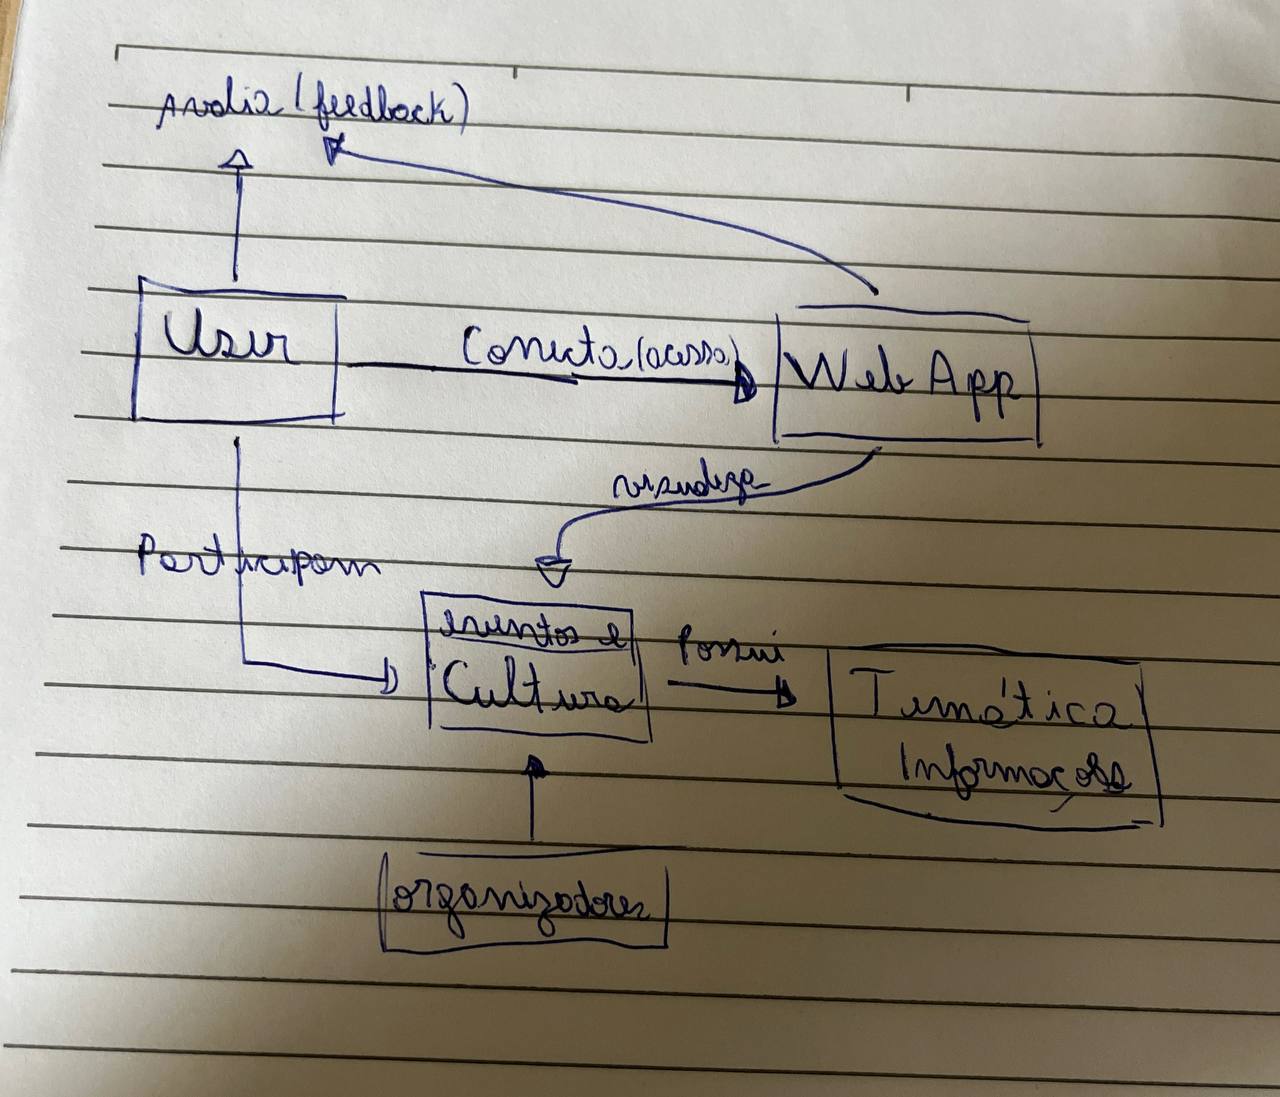 Avalia (feedback)
User
Conecta (acessa)
Web App
visualiza
Participam
eventos e
Cultura
Possui
Temática
Informações
organizadores